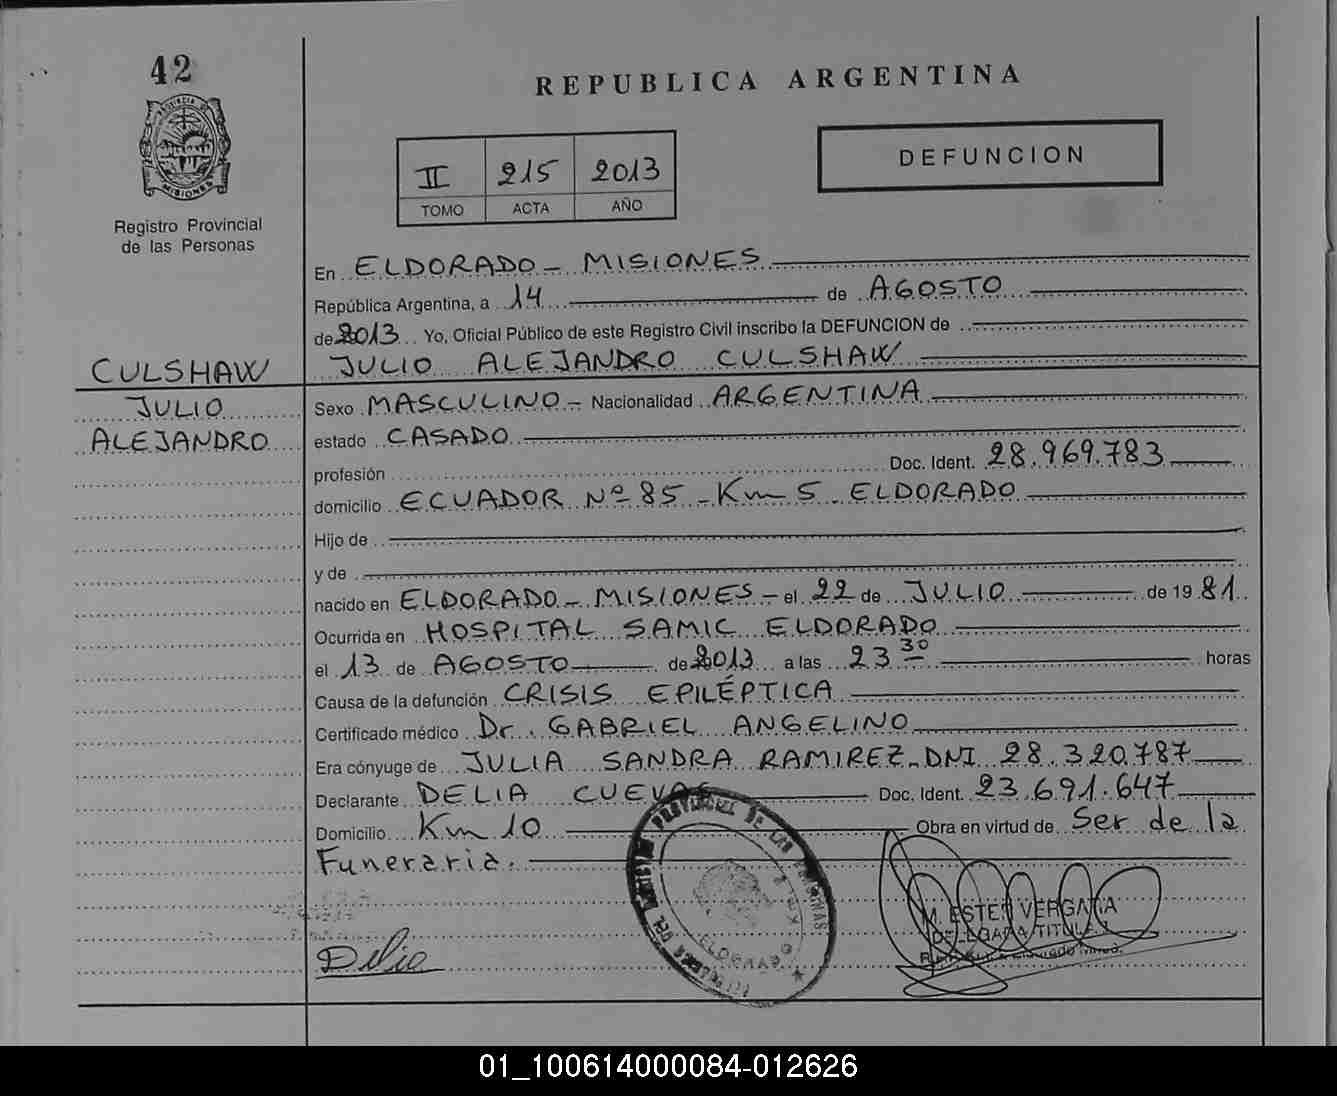 42
REPUBLICA ARGENTINA
PROVINCIA DE
MISIONES
II 215 2013
TOMO ACTA AÑO
DEFUNCION
Registro Provincial
de las Personas
En ELDORADO - MISIONES
República Argentina, a 14 de AGOSTO
de 2013 Yo, Oficial Público de este Registro Civil inscribo la DEFUNCION de
CULSHAW
JULIO ALEJANDRO CULSHAW
JULIO
ALEJANDRO
Sexo MASCULINO - Nacionalidad ARGENTINA
estado CASADO
profesión Doc. Ident. 28.969.783
domicilio ECUADOR Nº 85 - Km 5 - ELDORADO
Hijo de
y de
nacido en ELDORADO - MISIONES - el 22 de JULIO de 1981
Ocurrida en HOSPITAL SAMIC ELDORADO
el 13 de AGOSTO de 2013 a las 23 30 horas
Causa de la defunción CRISIS EPILÉPTICA
Certificado médico Dr. GABRIEL ANGELINO
Era cónyuge de JULIA SANDRA RAMIREZ - DNI 28.320.787
Declarante DELIA CUEVAS Doc. Ident. 23.691.647
Domicilio Km 10 Obra en virtud de Ser de la
Funeraria.
PROVINCIAL DE LAS PERSONAS
ELDORADO
M. ESTER VERGARA
DELEGADA TITULAR
Delia
01_100614000084-012626